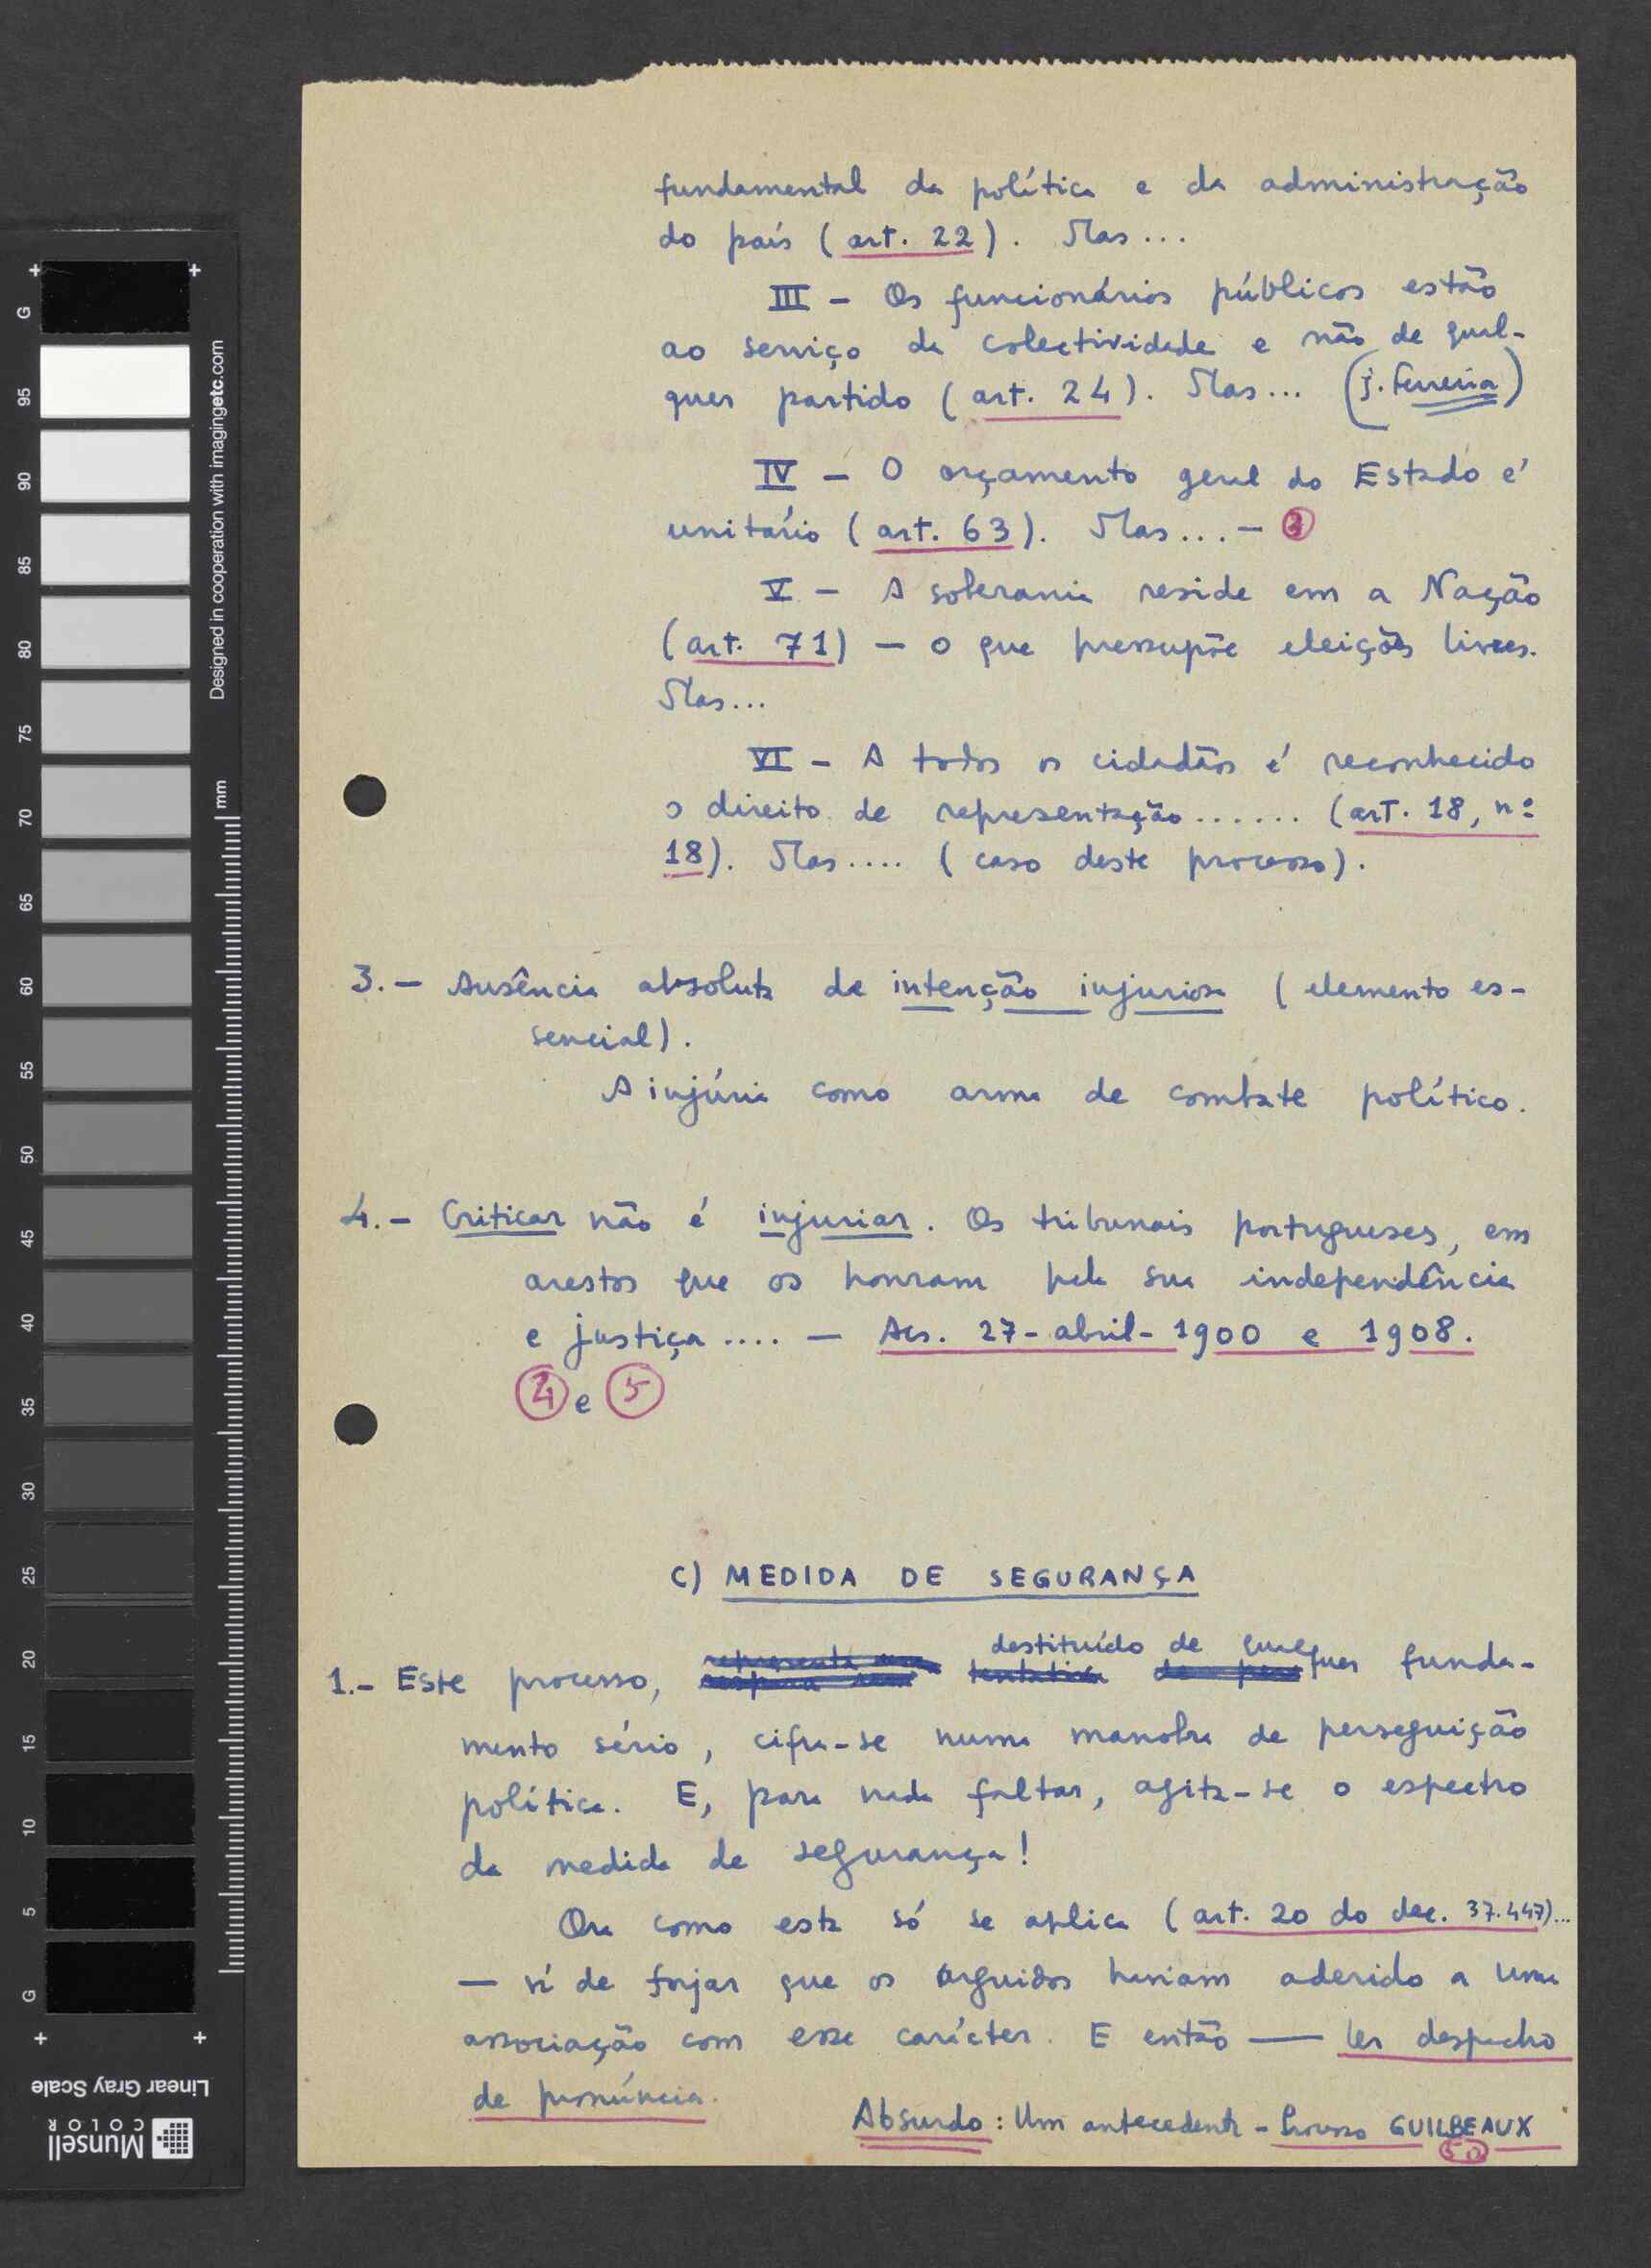 fundamental da política e da administração
do país (art. 22). Mas...
III - Os funcionários públicos estão
ao serviço da colectividade e não de qual-
quer partido (art. 24). Mas... (J. Ferreira)
IV - O orçamento geral do Estado é
unitário (art. 63). Mas... - 3
V - A soberania reside em a Nação
(art. 71) - o que pressupõe eleições livres.
Mas...
VI - A todos os cidadãos é reconhecido
o direito de representação ...... (art. 18, nº
18). Mas.... (caso deste processo).
3. - Ausência absoluta de intenção injuriosa (elemento es-
sencial).
A injúria como arma de combate político.
4. - Criticar não é injuriar. Os tribunais portugueses, em
arestos que os honram pela sua independência
e justiça .... - Acs. 27-abril-1900 e 1908.
4 e 5
C) MEDIDA DE SEGURANÇA
destituído de qualquer funda-
1.- Este processo, representa uma tentativa
mento sério, cifra-se numa manobra de perseguição
política. E, para nada faltar, agita-se o espectro
da medida de segurança!
Ora como esta só se aplica (art. 20 do dec. 37.447)...
- vá de forjar que os arguidos haviam aderido a uma
associação com esse carácter. E então — ler despacho
de pronúncia.
Absurdo: Um antecedente - Processo GUILBEAUX
5a
+ +
G 95 90 85 80 75 70 65 60 55 50 45 40 35 30 25 20 15 10 5 G
+ +
Designed in cooperation with imagingetc.com
mm
Linear Gray Scale
Munsell
COLOR